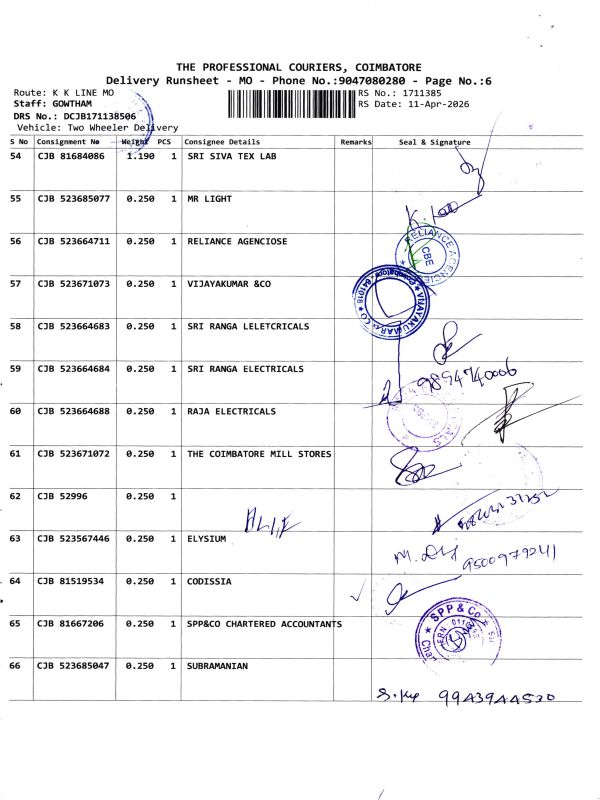 THE PROFESSIONAL COURIERS, COIMBATORE
Delivery Runsheet - MO - Phone No.:9047080280 - Page No.:6
Route: K K LINE MO
RS No.: 1711385
Staff: GOWTHAM
RS Date: 11-Apr-2026
DRS No.: DCJB171138506
Vehicle: Two Wheeler Delivery
S No Consignment No Weight PCS Consignee Details Remarks Seal & Signature
54 CJB 81684086 1.190 1 SRI SIVA TEX LAB
55 CJB 523685077 0.250 1 MR LIGHT
56 CJB 523664711 0.250 1 RELIANCE AGENCIOSE
RELIANCE AGENCIES
CBE
57 CJB 523671073 0.250 1 VIJAYAKUMAR &CO
VIJAYAKUMAR & CO
Coimbatore - 641018
58 CJB 523664683 0.250 1 SRI RANGA LELETCRICALS
59 CJB 523664684 0.250 1 SRI RANGA ELECTRICALS
9894740006
60 CJB 523664688 0.250 1 RAJA ELECTRICALS
61 CJB 523671072 0.250 1 THE COIMBATORE MILL STORES
62 CJB 52996 0.250 1
63 CJB 523567446 0.250 1 ELYSIUM
9500979241
64 CJB 81519534 0.250 1 CODISSIA
65 CJB 81667206 0.250 1 SPP&CO CHARTERED ACCOUNTANTS
SPP & Co
66 CJB 523685047 0.250 1 SUBRAMANIAN
9943944530